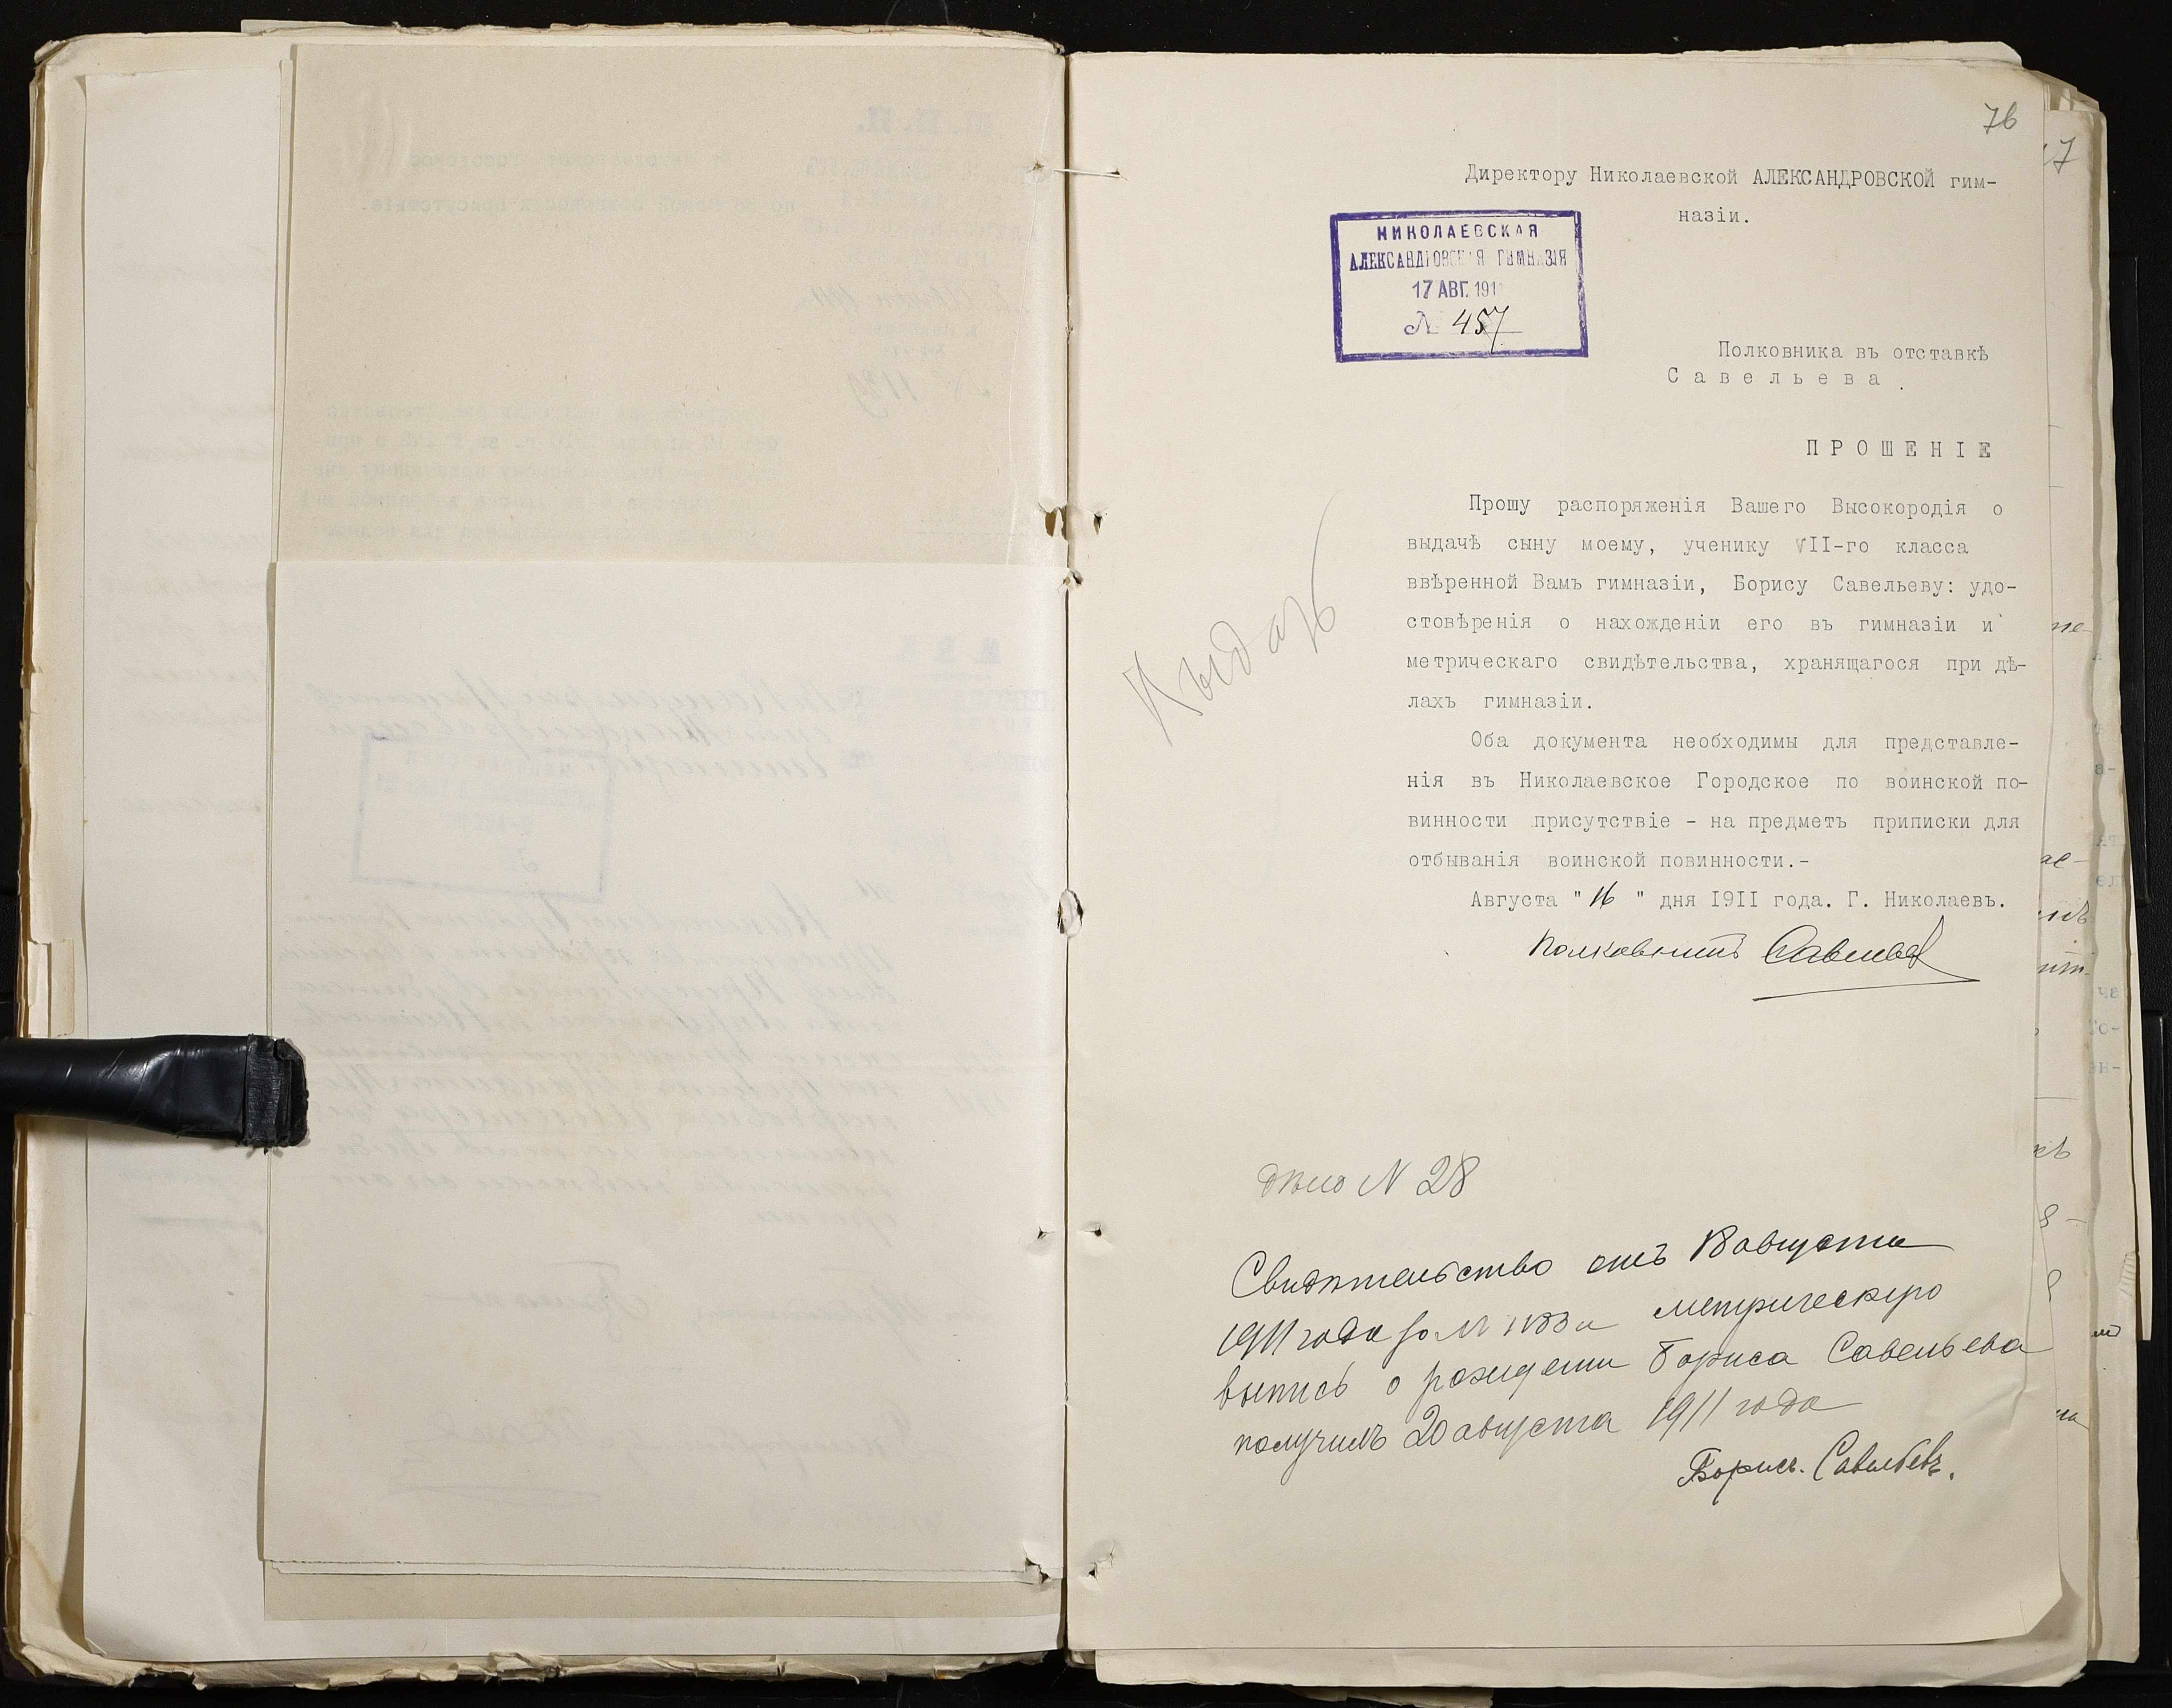 76
Директору Николаевской АЛЕКСАНДРОВСКОЙ гим-
назіи.
НИКОЛАЕВСКАЯ
АЛЕКСАНДРОВСКАЯ ГИМНАЗІЯ
17 АВГ. 1911
№ 457
Полковника въ отставкѣ
Савельева.
ПРОШЕНІЕ
Прошу распоряженія Вашего Высокородія о
выдачѣ сыну моему, ученику VII-го класса
ввѣренной Вамъ гимназіи, Борису Савельеву: удо-
стовѣренія о нахожденіи его въ гимназіи и
метрическаго свидѣтельства, хранящагося при дѣ-
лахъ гимназіи.
Оба документа необходимы для представле-
нія въ Николаевское Городское по воинской по-
винности присутствіе - на предметъ приписки для
отбыванія воинской повинности.-
Августа " 16 " дня 1911 года. Г. Николаевъ.
Полковникъ Савельев
Выдать
дѣло N 28
Свидѣтельство отъ 18 августа
1911 года за № и метрическую
выпись о рождении Бориса Савельева
получилъ 20 августа 1911 года
Борисъ Савельевъ.